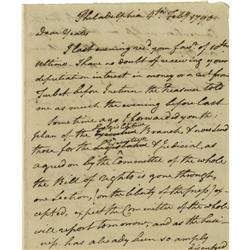 Philadelphia 4th Feby 1790
Dear Yeates
I last evening recd your favr of 10th
ultimo. I have no doubt of receiving your
depreciation interest in money or a
before Eastern the Treasurer told
me as much the evening before last.
Some time ago I forwarded you the
plan of the Branch, & now send
those for the & Judicial, as
agreed on by the Committee of the whole
the Bill of rights is gone through,
one Section, on the liberty of the press, ex-
cepted, I expect the Committee of the whole
will report tomorrow, and as the busi-
ness has already been so amply